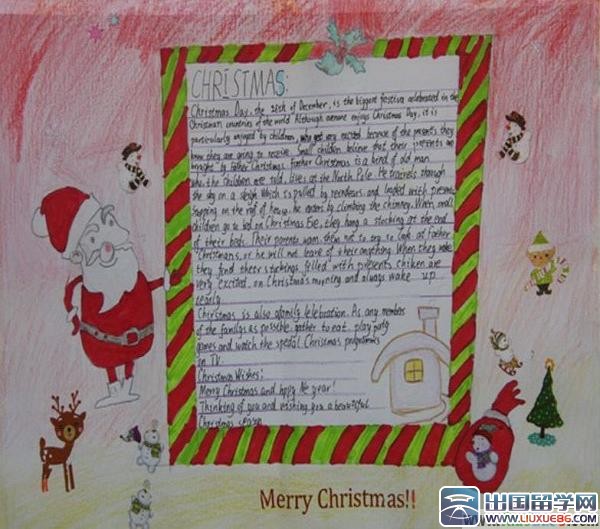 CHRISTMAS:
Christmas Day, the 25th of December, is the biggest festiva celebrated in the
Christman countries of the world Although everone enjoys Christmas Day, it is
particularly enjoyed by children, who get very excited because of the presents they
know they are going to receive. Small children believe that their presents are
brought by Father Christmas. Father Christmas is a kind of old man
who, the children are told, lives at the North Pole. He travels through
the sky on a sleigh which is pulled by reindeers and loaded with presents
Stopping on the roof of house, he enters by climbing the chimney. When small
children go to bed on Christmas Eve, they hang a stocking at the end
of their beds. Their parents warn them not to try to look at Father
Christmas, or he will not leave of them anything. When they wake
they find their stockings filled with presents. Chilren are
very excited. on Christmas morning and always wake up
early
Christmas is also family celebration. As any members
of the familys as possible gather to eat, play party
games and watch the special Christmas programmes
in TV
Christmas Wishes:
Merry Christmas and happy Ne year!
Thinking of you and wishing you a beautiful
Christmas season
Merry Christmas!!
出国留学网
WWW.LIUXUE86.COM